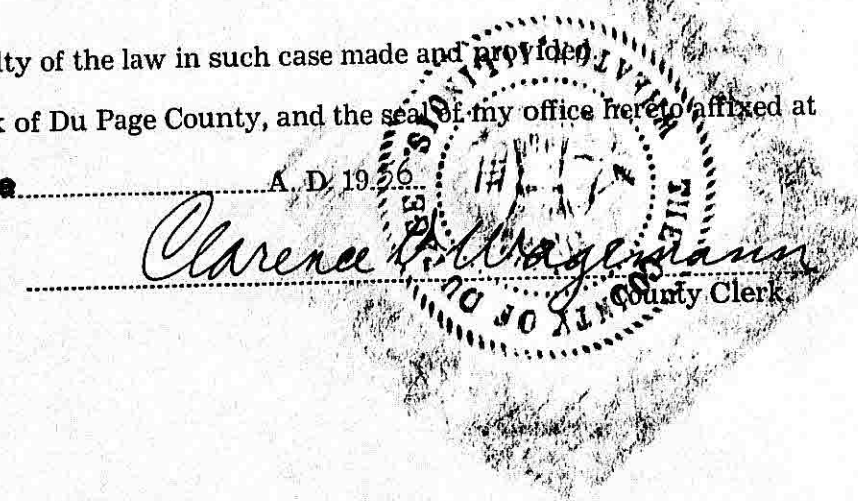 lty of the law in such case made and provided.
k of Du Page County, and the seal of my office hereto affixed at
e A. D. 1956
Clarence V. Wagemann
County Clerk
COUNTY OF DU PAGE
ILLINOIS